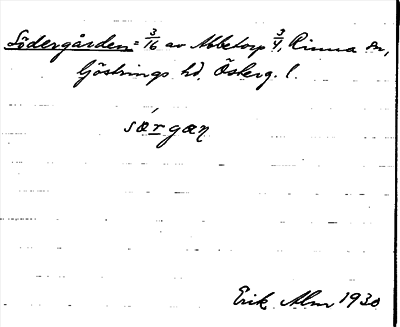 Södergården = 3/16 av Abbetorp 3/4, Rinna sn,
Göstrings hd, Österg. l.
særgæŋ
Erik Alm 1930